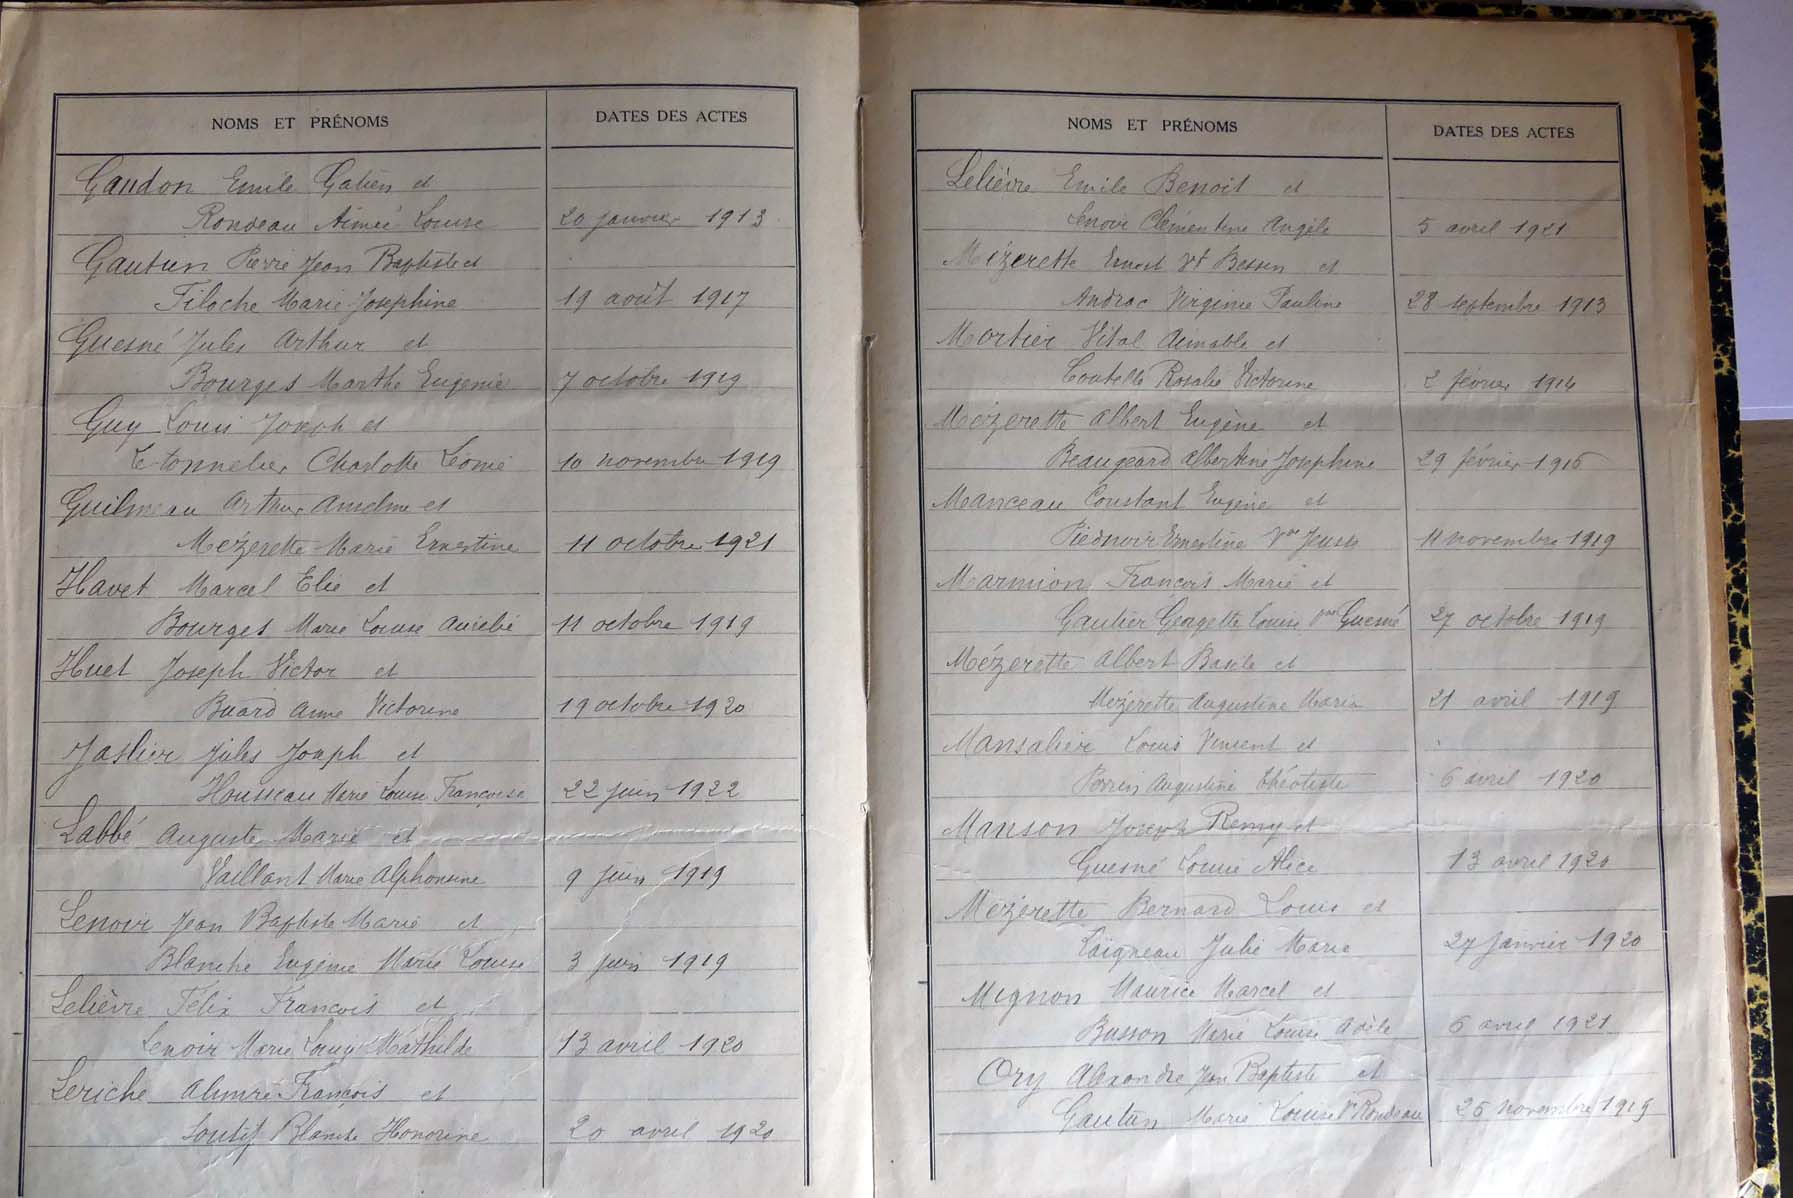 NOMS ET PRÉNOMS DATES DES ACTES
Gandon Emile Gatien et
Rondeau Aimée Louise 20 janvier 1913
Gautun Pierre Jean Baptiste et
Filoche Marie Josephine 19 août 1917
Guesné Jules Arthur et
Bourges Marthe Eugenie 7 octobre 1919
Guy Louis Joseph et
Letonnelier Charlotte Leonie 10 novembre 1919
Guilmeau Arthur Anselme et
Mézerette Marie Ernestine 11 octobre 1921
Havet Marcel Elie et
Bourges Marie Louise Aurélie 11 octobre 1919
Huet Joseph Victor et
Buard Anne Victorine 19 octobre 1920
Jaslier Jules Joseph et
Housseau Marie Louise Françoise 22 juin 1922
Labbé Auguste Marie et
Vaillant Marie Alphonsine 9 juin 1919
Lenoir Jean Baptiste Marie et
Blanche Eugénie Marie Louise 3 juin 1919
Lelièvre Félix François et
Lenoir Marie Mathilde 13 avril 1920
Leriche François et
Loutif Blanche Honorine 20 avril 1920
NOMS ET PRÉNOMS DATES DES ACTES
Lelièvre Emile Benoit et
Lenoir Clémentine Angèle 5 avril 1921
Mézerette Ernest Vf Besson et
Androc Virginie Pauline 28 septembre 1913
Mortier Vital Aimable et
Coutelle Rosalie Victorine 2 février 1914
Mézerette Albert Eugène et
Beaugeard Albertine Josephine 29 février 1916
Manceau Constant Eugène et
Piednoir Ernestine Vve 11 novembre 1919
Marmion François Marie et
Gautier Georgette Louise Vve Guesné 27 octobre 1919
Mézerette Albert Basile et
Mézerette Augustine Maria 21 avril 1919
Mansalier Louis Vincent et
Perrin Augustine Théotiste 6 avril 1920
Manson Joseph Remy et
Guesné Louise Alice 13 avril 1920
Mézerette Bernard Louis et
Loigneau Julie Marie 27 janvier 1920
Mignon Maurice Marcel et
Busson Marie Louise Adèle 6 avril 1921
Ory Alexandre Jean Baptiste et
Gautun Marie Louise V Rondeau 25 novembre 1919